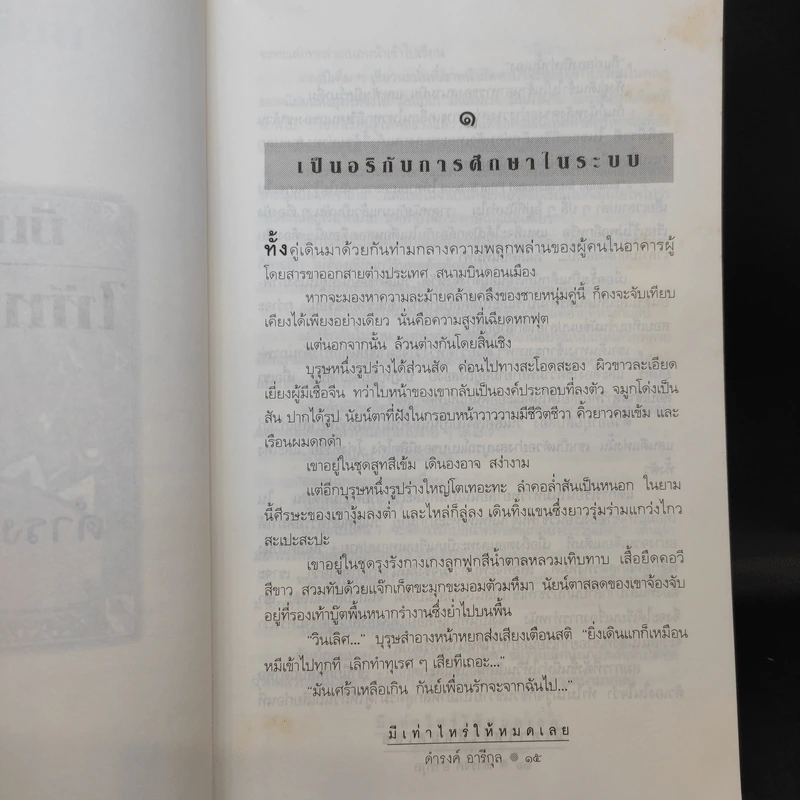 ๑
เป็นอริกับการศึกษาในระบบ
ทั้งคู่เดินมาด้วยกันท่ามกลางความพลุกพล่านของผู้คนในอาคารผู้
โดยสารขาออกสายต่างประเทศ สนามบินดอนเมือง
หากจะมองหาความละม้ายคล้ายคลึงของชายหนุ่มคู่นี้ ก็คงจะจับเทียบ
เคียงได้เพียงอย่างเดียว นั่นคือความสูงที่เฉียดหกฟุต
แต่นอกจากนั้น ล้วนต่างกันโดยสิ้นเชิง
บุรุษหนึ่งรูปร่างได้ส่วนสัด ค่อนไปทางสะโอดสะอง ผิวขาวละเอียด
เยี่ยงผู้มีเชื้อจีน ทว่าใบหน้าของเขากลับเป็นองค์ประกอบที่ลงตัว จมูกโด่งเป็น
สัน ปากได้รูป นัยน์ตาที่ฝังในกรอบหน้าวาววามมีชีวิตชีวา คิ้วยาวคมเข้ม และ
เรือนผมดกดำ
เขาอยู่ในชุดสูทสีเข้ม เดินองอาจ สง่างาม
แต่อีกบุรุษหนึ่งรูปร่างใหญ่โตเทอะทะ ลำคอล่ำสันเป็นหนอก ในยาม
นี้ศีรษะของเขางุ้มลงต่ำ และไหล่ก็ลู่ลง เดินทิ้งแขนซึ่งยาวรุ่มร่ามแกว่งไกว
สะเปะสะปะ
เขาอยู่ในชุดรุงรังกางเกงลูกฟูกสีน้ำตาลหลวมเทิบทาบ เสื้อยืดคอวี
สีขาว สวมทับด้วยแจ๊กเก็ตขะมุกขะมอมตัวมหึมา นัยน์ตาสลดของเขาจ้องจับ
อยู่ที่รองเท้าบู๊ตพื้นหนากรำงานซึ่งย่ำไปบนพื้น
"วินเลิศ..." บุรุษสำอางหน้าหยกส่งเสียงเตือนสติ "ยิ่งเดินแกก็เหมือน
หมีเข้าไปทุกที เลิกทำทุเรศ ๆ เสียทีเถอะ..."
"มันเศร้าเหลือเกิน กันย์เพื่อนรักจะจากฉันไป..."
มีเท่าไหร่ให้หมดเลย
ดำรงค์ อารีกุล ๑๕